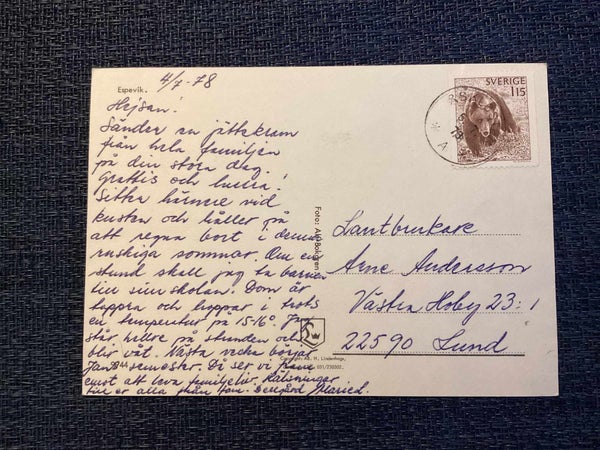 4/7-78
Espevik.
Hejsan!
Sänder en jättekram
från hela familjen
på din stora dag.
Grattis och hurra!
Sitter härnere vid
kusten och håller på
att regna bort i denna
ruskiga sommar. Om en
stund skall jag ta barnen
till simskolan. Dom är
tappra och hoppar i trots
en temperatur på 15-16°. Jag
står hellre på stranden och
blir våt. Nästa vecka börjar
Jans semester. Då ser vi fram
emot att leva familjeliv. Hälsningar
till er alla från fam. Bellgård Maried.
SVERIGE
115
78
A
Foto:
Lantbrukare
Arne Andersson
Västra Hoby 23:1
22590 Lund
Copyright: AB. H. Lindenhag,
031/230302.